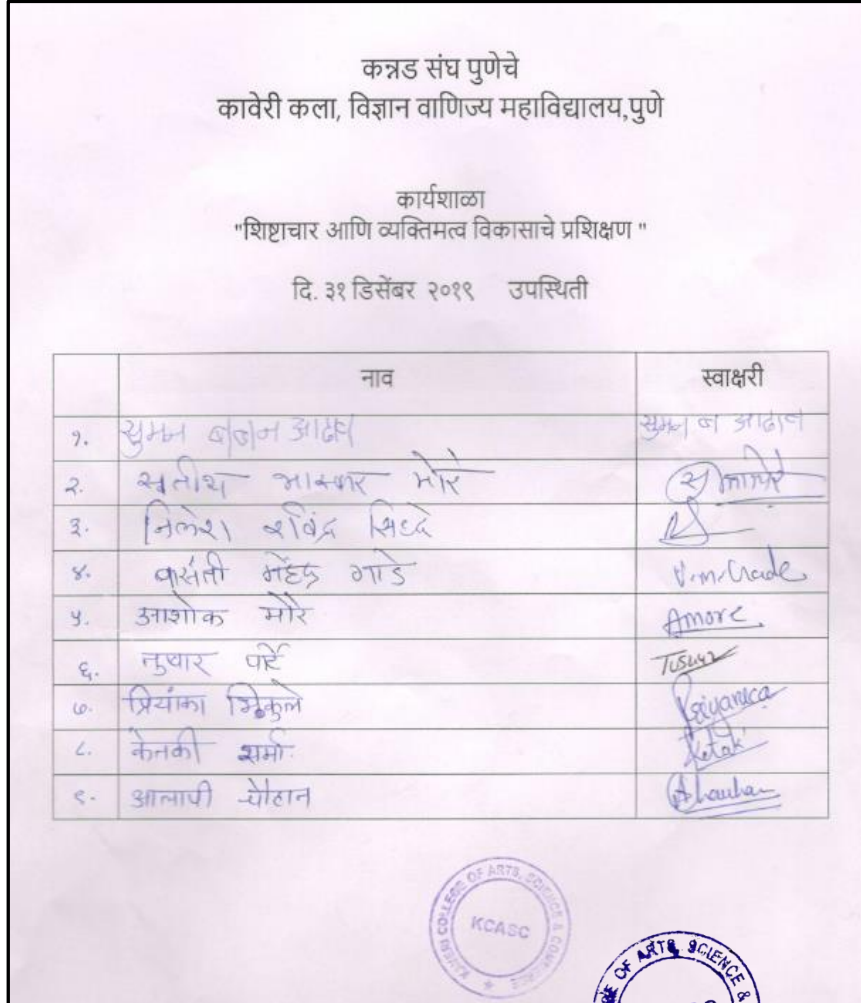 कन्नड संघ पुणेचे
कावेरी कला, विज्ञान वाणिज्य महाविद्यालय,पुणे
कार्यशाळा
"शिष्टाचार आणि व्यक्तिमत्व विकासाचे प्रशिक्षण "
दि. ३१ डिसेंबर २०१९ उपस्थिती
नाव स्वाक्षरी
१. सुमन बबन आढाव सुमन ब आढाव
२. सतीश भास्कर मोरे
३. निलेश रविंद्र सिध्दे
४. वासंती महेंद्र गाडे V.m.Gade
५. आशोक मोरे Amore
६. तुषार पार्टे Tusuar
७. प्रियांका भिकुले Priyanka
८. केतकी शर्मा Ketaki
९. आलापी चौहान Chauhan
KAVERI COLLEGE OF ARTS, SCIENCE & COMMERCE
KCASC
OF ARTS, SCIENCE &